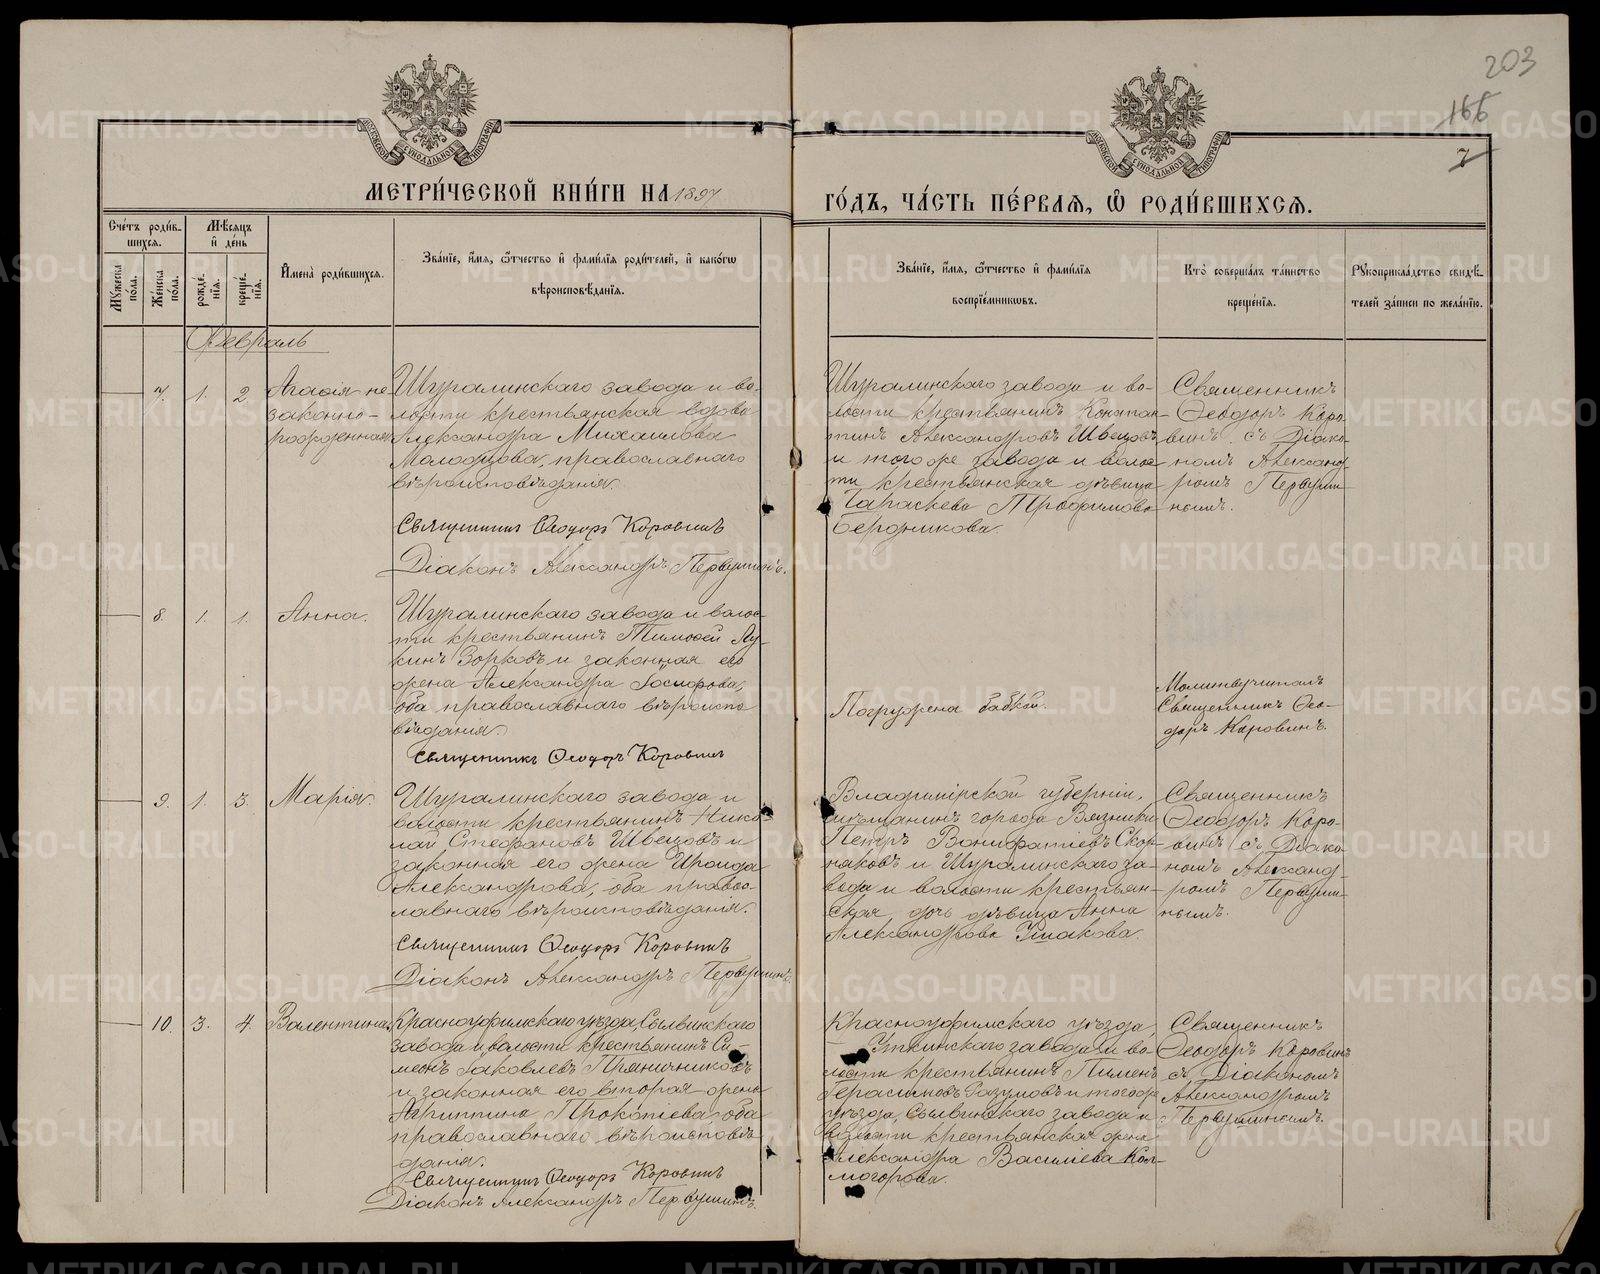 203
166
7
МОСКОВСКОЙ СѴНОДАЛЬНОЙ ТИПОГРАФІИ
МОСКОВСКОЙ СѴНОДАЛЬНОЙ ТИПОГРАФІИ
МЕТРИ́ЧЕСКОЙ КНИ́ГИ НА 1897
ГО́ДЪ, ЧА́СТЬ ПЕ́РВАѦ, Ѡ҆ РОДИ́ВШИХСѦ.
Сче́тъ роди́в-
шихсѧ.
Мѣ́сѧцъ
и҆ де́нь
Мꙋ́жеска по́ла.
Же́нска по́ла.
рожде́-нїѧ.
креще́-нїѧ.
И҆мена̀ роди́вшихсѧ.
Зва́нїе, и҆́мѧ, ѻ҆́тчество и҆ фами́лїѧ роди́телей, и҆ како́гѡ
вѣроисповѣ́данїѧ.
Зва́нїе, и҆́мѧ, ѻ҆́тчество и҆ фами́лїѧ
воспрїе́мникѡвъ.
Кто̀ соверша́лъ та́инство
креще́нїѧ.
Рꙋкоприкла́дство свидѣ́-
телей за́писи по жела́нїю.
Февраль
7. 1. 2. Агафія не
законно-
рожденная
Шуралинскаго завода и во-
лости крестьянская вдова
Александра Михаилова
Молодцова, православнаго
вѣроисповѣданія.
Священникъ Ѳеодоръ Коровинъ
Діаконъ Александръ Первушинъ.
Шуралинскаго завода и во-
лости крестьянинъ Констан-
тинъ Александровъ Швецовъ
и того же завода и волос-
ти крестьянская дѣвица
Параскева Трофимова
Бердникова.
Священникъ
Ѳеодоръ Коро-
винъ съ Діако-
номъ Александ-
ромъ Первуши-
нымъ.
8. 1. 1. Анна.
Шуралинскаго завода и волос-
ти крестьянинъ Тимофей Лу-
кинъ Зорковъ и законная его
жена Александра
оба православнаго вѣроиспо-
вѣданія.
Священникъ Ѳеодоръ Коровинъ
Погружена бабкой.
Молитвучиталъ
Священникъ Ѳео-
доръ Коровинъ.
9. 1. 3. Марія.
Шуралинскаго завода и
волости крестьянинъ Нико-
лай Стефановъ Швецовъ и
законная его жена Ираида
Александрова, оба право-
славнаго вѣроисповѣданія.
Священникъ Ѳеодоръ Коровинъ
Діаконъ Александръ Первушинъ.
Владимірской губерніи,
мѣщанинъ города Вязники
Петръ Вонифатіевъ Скор-
няковъ и Шуралинскаго за-
вода и волости крестьян-
ская дочь дѣвица Анна
Александрова Ушакова.
Священникъ
Ѳеодоръ Коро-
винъ съ Діако-
номъ Александ-
ромъ Первуши-
нымъ.
10. 3. 4. Валентина.
Красноуфимскаго уѣзда, Сылвинскаго
завода и волости крестьянинъ Си-
меонъ Іаковлевъ Пряничниковъ
и законная его вторая жена
Агриппина Прокопіева, оба
православнаго вѣроисповѣ-
данія.
Священникъ Ѳеодоръ Коровинъ
Діаконъ Александръ Первушинъ.
Красноуфимскаго уѣзда
Уткинскаго завода и во-
лости крестьянинъ Пименъ
Герасимовъ Разумовъ и того же
уѣзда, Сылвинскаго завода и
волости крестьянская жена
Александра Василіева Кол-
могорова.
Священникъ
Ѳеодоръ Коровинъ
съ Діакономъ
Александромъ
Первушинымъ.
METRIKI.GASO-URAL.RU